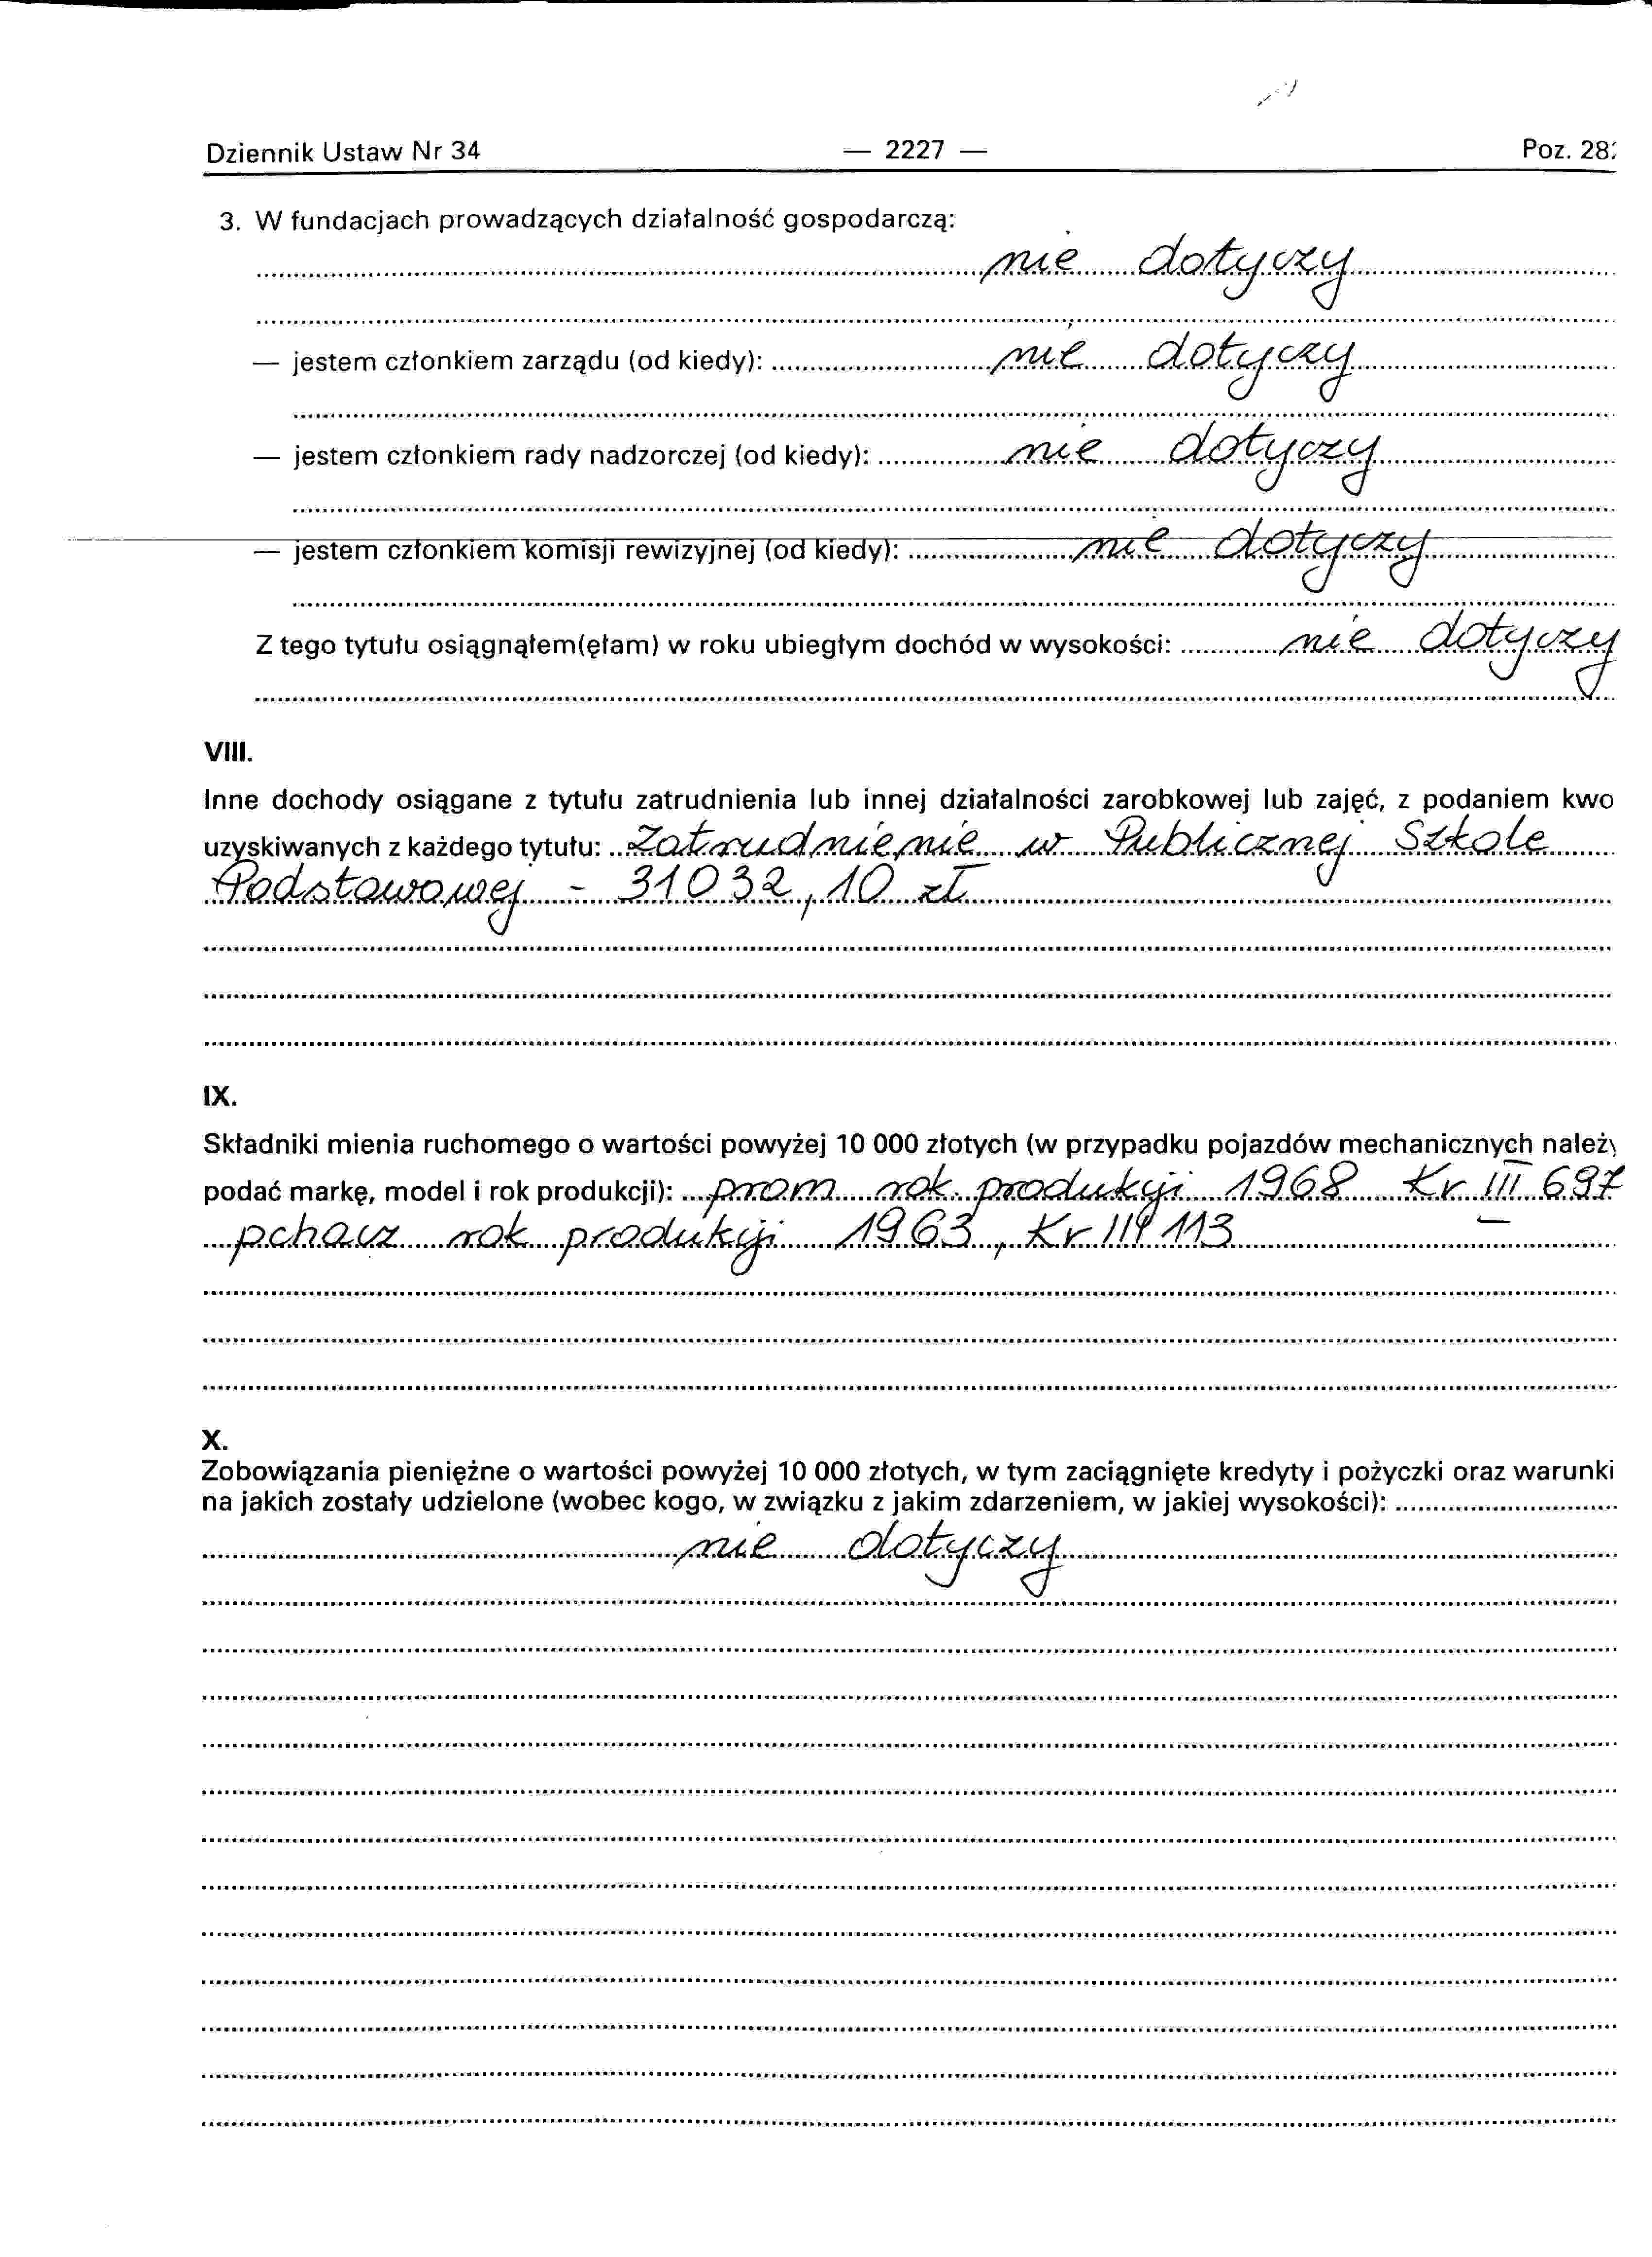 Dziennik Ustaw Nr 34 — 2227 — Poz. 28
3. W fundacjach prowadzących działalność gospodarczą:
nie dotyczy
— jestem członkiem zarządu (od kiedy): nie dotyczy
— jestem członkiem rady nadzorczej (od kiedy): nie dotyczy
— jestem członkiem komisji rewizyjnej (od kiedy): nie dotyczy
Z tego tytułu osiągnąłem(ęłam) w roku ubiegłym dochód w wysokości: nie dotyczy
VIII.
Inne dochody osiągane z tytułu zatrudnienia lub innej działalności zarobkowej lub zajęć, z podaniem kwo
uzyskiwanych z każdego tytułu: zatrudnienie w Publicznej Szkole
Podstawowej - 31032,10 zł
IX.
Składniki mienia ruchomego o wartości powyżej 10 000 złotych (w przypadku pojazdów mechanicznych należy
podać markę, model i rok produkcji): prom rok produkcji 1968 Kr III 697
pchacz rok produkcji 1963, Kr III 113
X.
Zobowiązania pieniężne o wartości powyżej 10 000 złotych, w tym zaciągnięte kredyty i pożyczki oraz warunki
na jakich zostały udzielone (wobec kogo, w związku z jakim zdarzeniem, w jakiej wysokości):
nie dotyczy